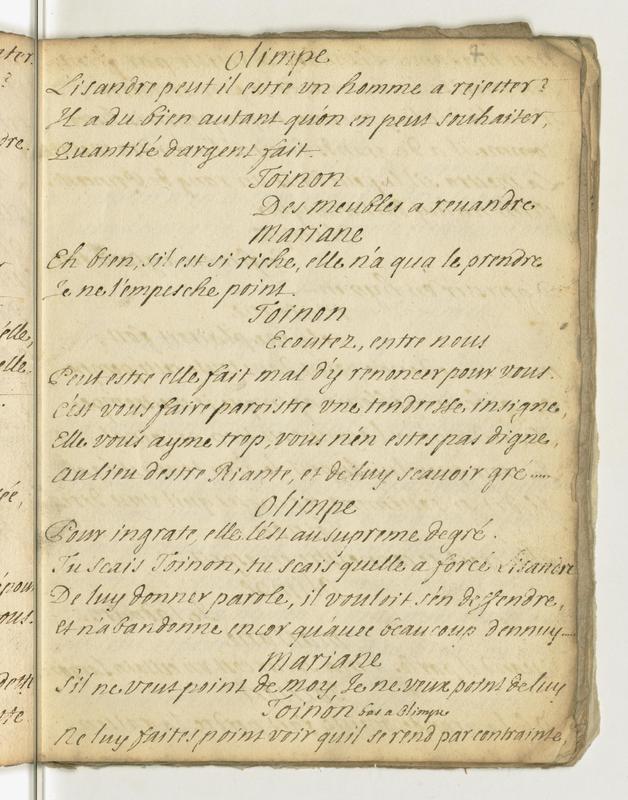 7
Olimpe
Lisandre peut il estre vn homme a rejetter?
Il a du bien autant qu'on en peut souhaiter,
Quantité d'argent fait.
Toinon
Des meubles a reuandre
Mariane
Eh bien, s'il est si riche, elle n'a qua le prendre
Je ne l'empesche point.
Toinon
Ecoutez, entre nous
Peut estre elle fait mal d'y renoncer pour vous.
C'est vous faire paroistre vne tendresse insigne,
Elle vous ayme trop, vous n'en estes pas digne,
au lieu destre Riante, et de luy scauoir gré .....
Olimpe
Pour ingrate, elle l'est au supreme degré.
Tu scais Toinon, tu scais quelle a forcé Lisandre
De luy donner parole, il vouloit s'en deffendre,
Et n'abandonne encor qu'auec beaucoup dennuy....
Mariane
S'il ne veut point de moy, Je ne veux point de luy
Toinon bas a Olimpe
Ne luy faites point voir quil se rend par contrainte,